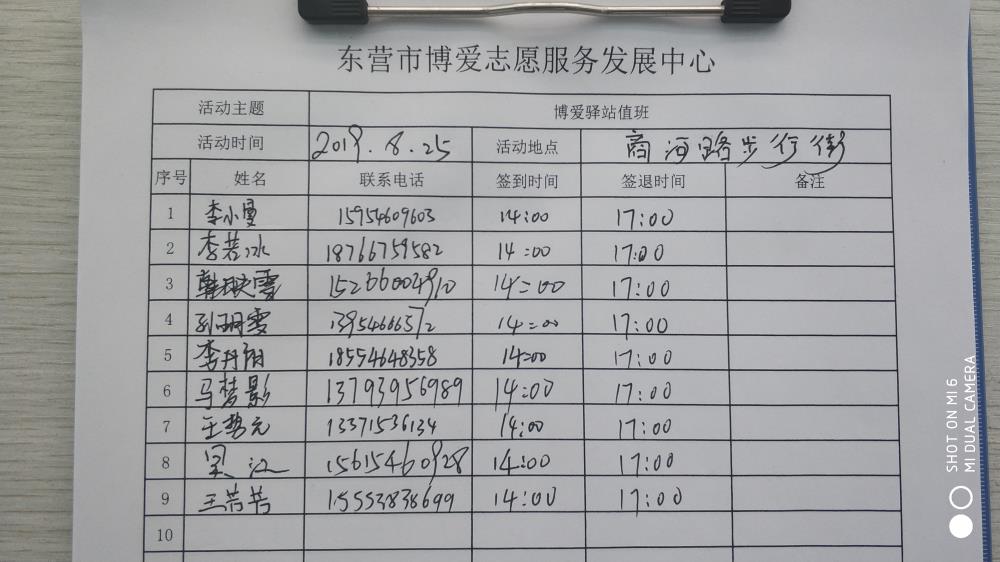 东营市博爱志愿服务发展中心
活动主题 博爱驿站值班
活动时间 2019.8.25 活动地点 商河路步行街
序号 姓名 联系电话 签到时间 签退时间 备注
1 李小曼 15954609603 14:00 17:00
2 李若冰 18766759582 14:00 17:00
3 15266004910 14:00 17:00
4 孙玥雯 13954666572 14:00 17:00
5 李丹阳 18554648358 14:00 17:00
6 马梦影 13793956989 14:00 17:00
7 13371536134 14:00 17:00
8 吴江 15615460928 14:00 17:00
9 王芳芳 15553838699 14:00 17:00
10
SHOT ON MI 6
MI DUAL CAMERA